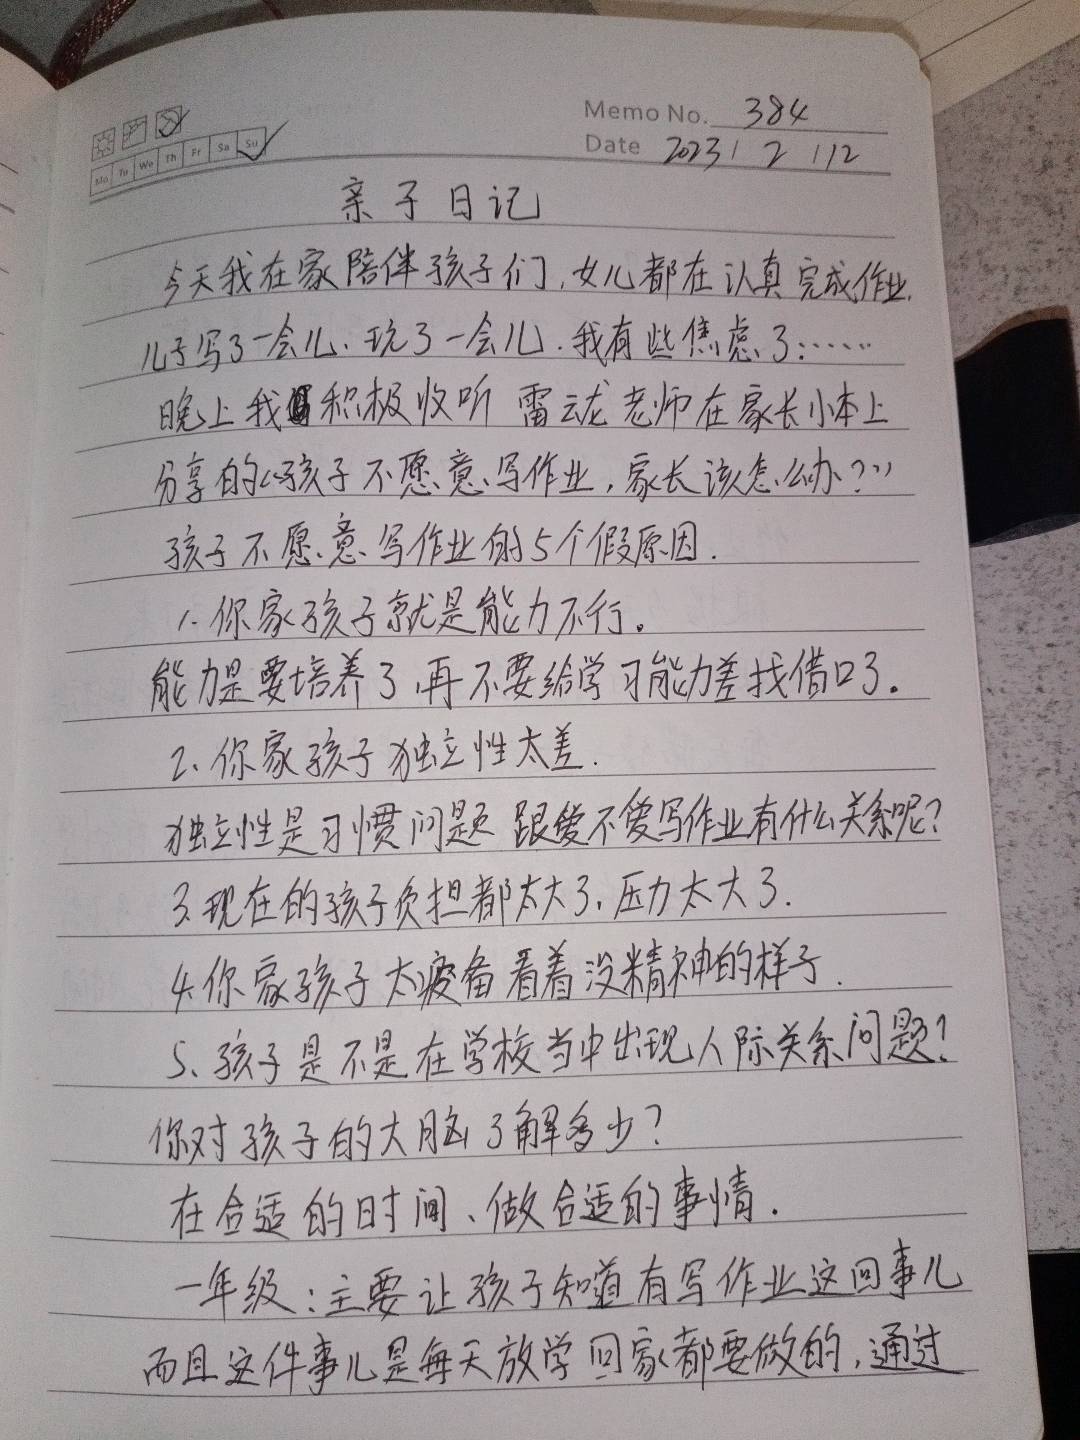 Memo No. 384
Mo Tu We Th Fr Sa Su
Date 2023 / 2 / 12
亲子日记
今天我在家陪伴孩子们,女儿都在认真完成作业,
儿子写了一会儿、玩了一会儿.我有些焦虑了:……
晚上我积极收听 雷云龙老师在家长小本上
分享的《孩子不愿意写作业,家长该怎么办?》
孩子不愿意写作业的5个假原因.
1.你家孩子就是能力不行。
能力是要培养了,再不要给学习能力差找借口了。
2、你家孩子独立性太差.
独立性是习惯问题 跟爱不爱写作业有什么关系呢?
3.现在的孩子负担都太大了,压力太大了.
4.你家孩子太疲备看着没精神的样子.
5、孩子是不是在学校当中出现人际关系问题?
你对孩子的大脑了解多少?
在合适的时间、做合适的事情.
一年级:主要让孩子知道有写作业这回事儿
而且这件事儿是每天放学回家都要做的,通过